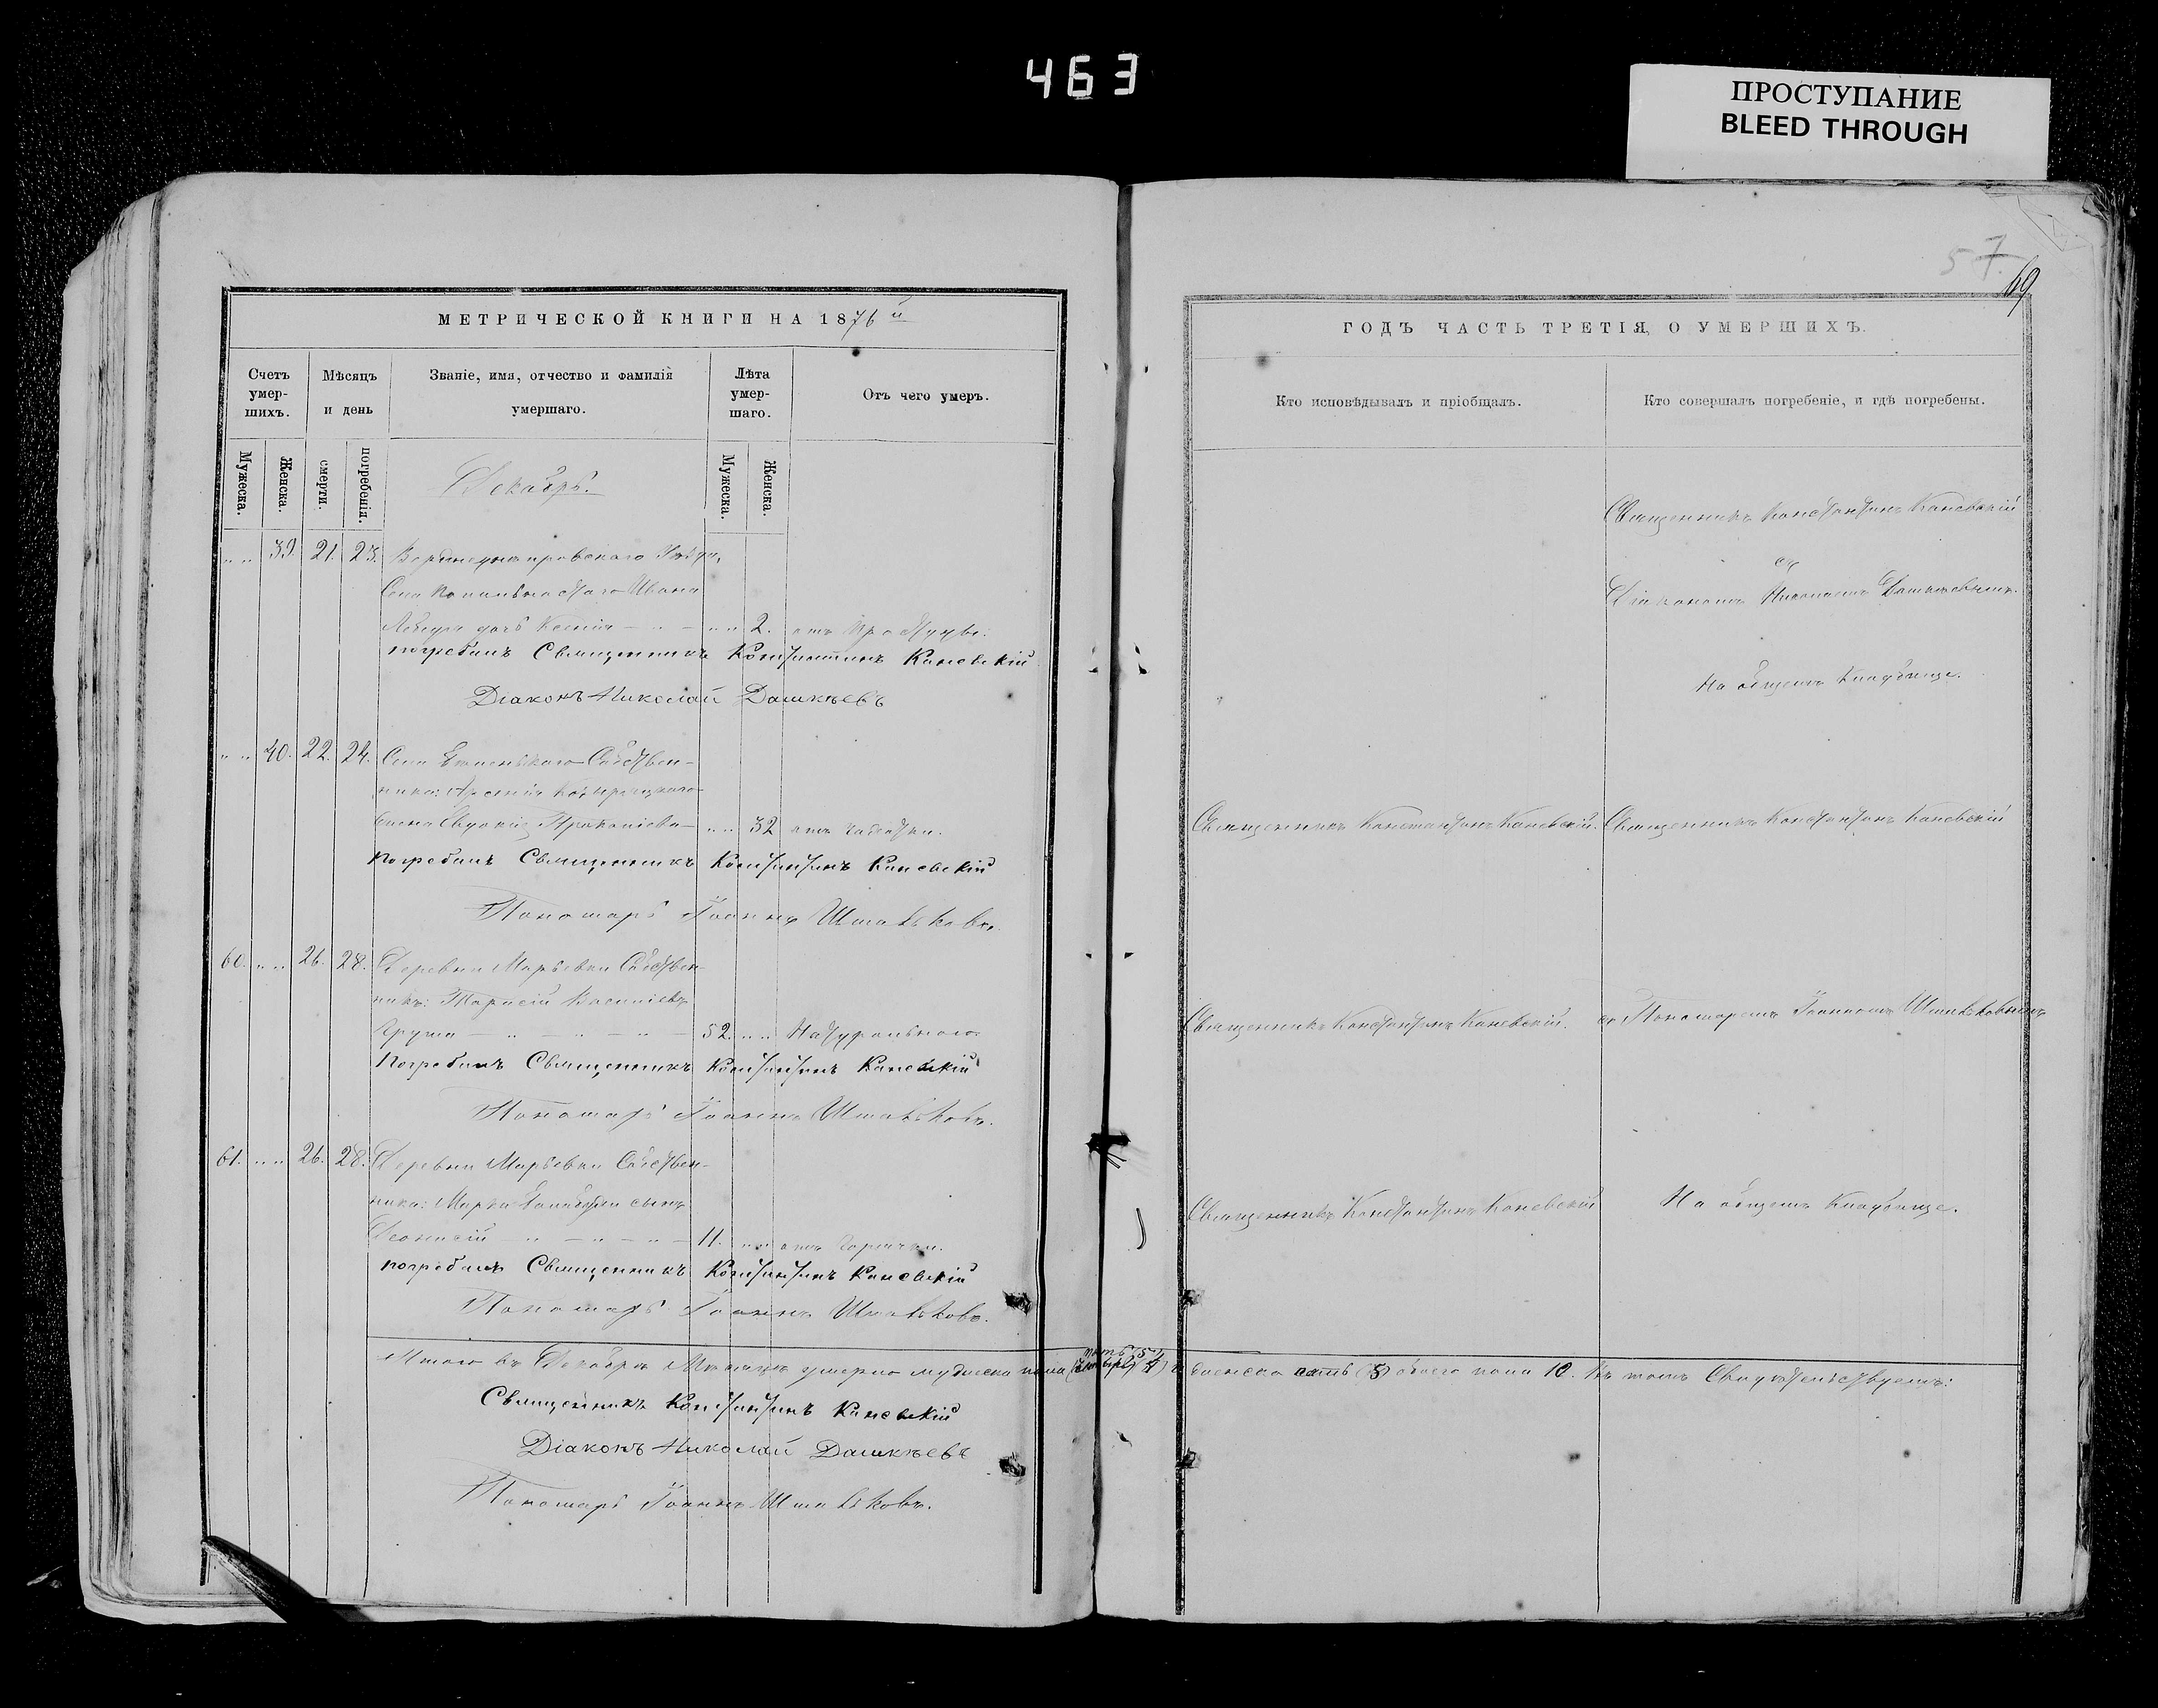 463
ПРОСТУПАНИЕ
BLEED THROUGH
57.
69
МЕТРИЧЕСКОЙ КНИГИ НА 1876 й
Счетъ умер-шихъ.
Мѣсяцъ и день
Званіе, имя, отчество и фамилія умершаго.
Лѣта умер-шаго.
Отъ чего умеръ.
Мужеска.
Женска.
смерти.
погребенія.
Мужеска.
Женска.
Декабрь.
39. 21. 23. Верхнеднепровскаго Уѣзда,
Села Ивана
дочь Ксенія 2. отъ Простуды.
погребалъ Священникъ Константинъ Каневскій
Діаконъ Николай Дашкѣевъ
40. 22. 24. Села Собствен-
ника: Арсенія
жена Евдокія Прокопіева 32 отъ чахотки.
Погребалъ Священникъ Константинъ Каневскій
Пономарь Іоаннъ Шмаьковъ.
60. 26. 28. Деревни Марьевки Собствен-
никъ: Тарасій Василіевъ
Груша 52. Натуральною
Погребалъ Священникъ Константинъ Каневскій
Пономарь Іоаннъ
61. 26. 28. Деревни Марьевки Собствен-
ника: Марка сынъ
Діонисій 11. отъ Горячки.
погребалъ Священникъ Константинъ Каневскій
Пономарь Іоаннъ
Итого въ Декабрѣ Мѣсяцѣ умерло мужеска пола пять (5) женска пять (5) обоего пола 10. Въ томъ Свидѣтельствуемъ:
Священникъ Константинъ Каневскій
Діаконъ Николай Дашкѣевъ
Пономарь Іоаннъ
ГОДЪ ЧАСТЬ ТРЕТІЯ, О УМЕРШИХЪ.
Кто исповѣдывалъ и пріобщалъ.
Кто совершалъ погребеніе, и гдѣ погребены.
Священникъ Константинъ Каневскій
съ
Діакономъ Николаемъ Дашкѣевымъ.
На общемъ Кладбище.
Священникъ Константинъ Каневскій. Священникъ Константинъ Каневскій
Священникъ Константинъ Каневскій. съ Пономаремъ Іоанномъ
Священникъ Константинъ Каневскій На общемъ Кладбище.